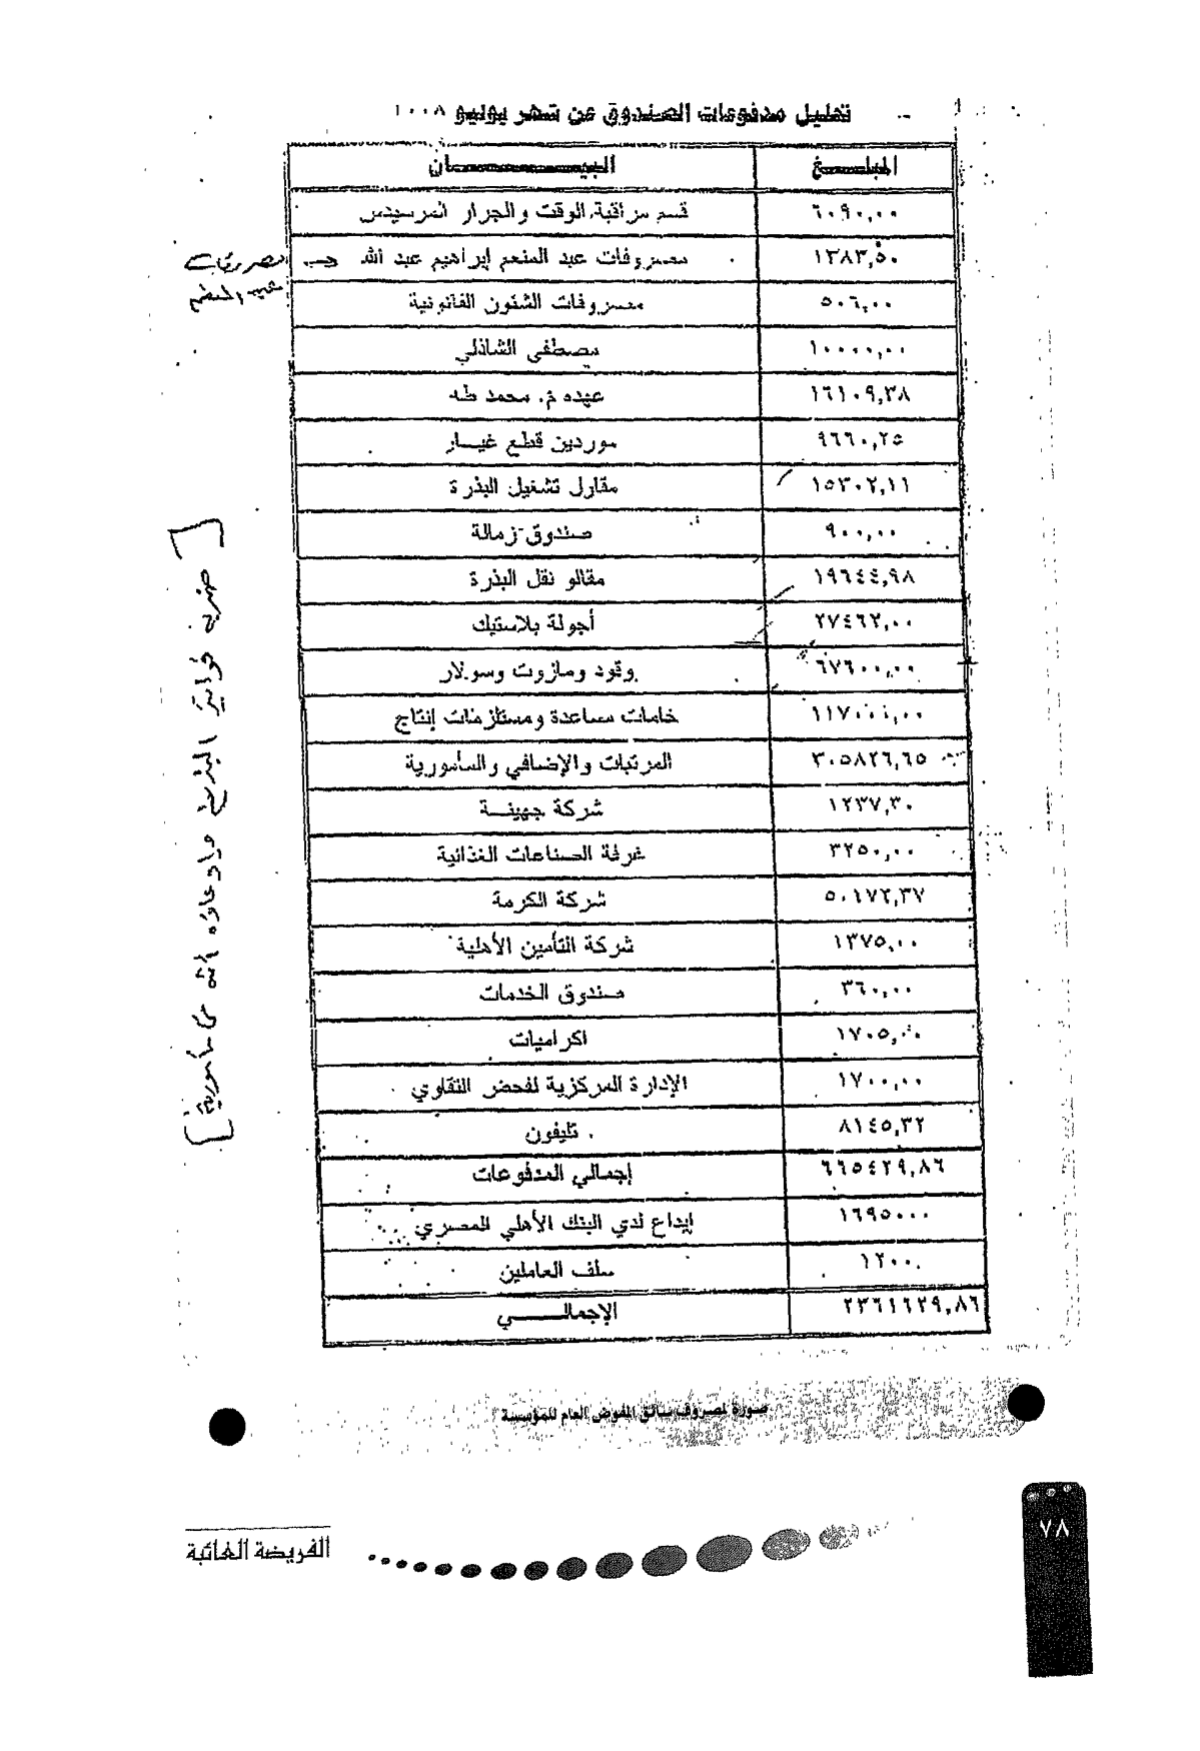 تحليل مدفوعات الصندوق عن شهر يوليو ٢٠٠٨
المبلــــغ البيـــــــــان
٦٠٩٠,٠٠ قسم مراقبة الوقت والجرار المرسيدس
١٢٨٣,٥٠ مصروفات عبد المنعم إبراهيم عبد الله
مصروفات
عبد المنعم
٥٠٦,٠٠ مصروفات الشئون القانونية
١٠٠٠٠,٠٠ مصطفى الشاذلي
١٦١٠٩,٣٨ عهده م. محمد طه
٩٦٦٠,٢٥ موردين قطع غيـــار
١٥٣٠٢,١١ مقاول تشغيل البذرة
٩٠٠,٠٠ صندوق زمالة
١٩٦٤٤,٩٨ مقالو نقل البذرة
٢٧٤٦٢,٠٠ أجولة بلاستيك
٦٧٦٠٠,٠٠ وقود ومازوت وسولار
١١٧٠٠٠,٠٠ خامات مساعدة ومستلزمات إنتاج
٣٠٥٨٢٦,٦٥ المرتبات والإضافي والمأمورية
١٢٣٧,٣٠ شركة جهينـــة
٣٢٥٠,٠٠ غرفة الصناعات الغذائية
٥٠١٧٢,٣٧ شركة الكرمة
١٣٧٥,٠٠ شركة التأمين الأهلية
٣٦٠,٠٠ صندوق الخدمات
١٧٠٥,٠٠ اكراميات
١٧٠٠,٠٠ الإدارة المركزية لفحص التقاوي
٨١٤٥,٣٢ تليفون
٦٦٥٤٢٩,٨٦ إجمالي المدفوعات
١٦٩٥٠٠٠ إيداع لدي البنك الأهلي المصري
١٢٠٠ سلف العاملين
٢٣٦١٦٢٩,٨٦ الإجمالـــــي
فواتير البذرة أنه في مأمورية
صورة لمصروف سائق المفوض العام للمؤسسة
٧٨
الفريضة الغائبة